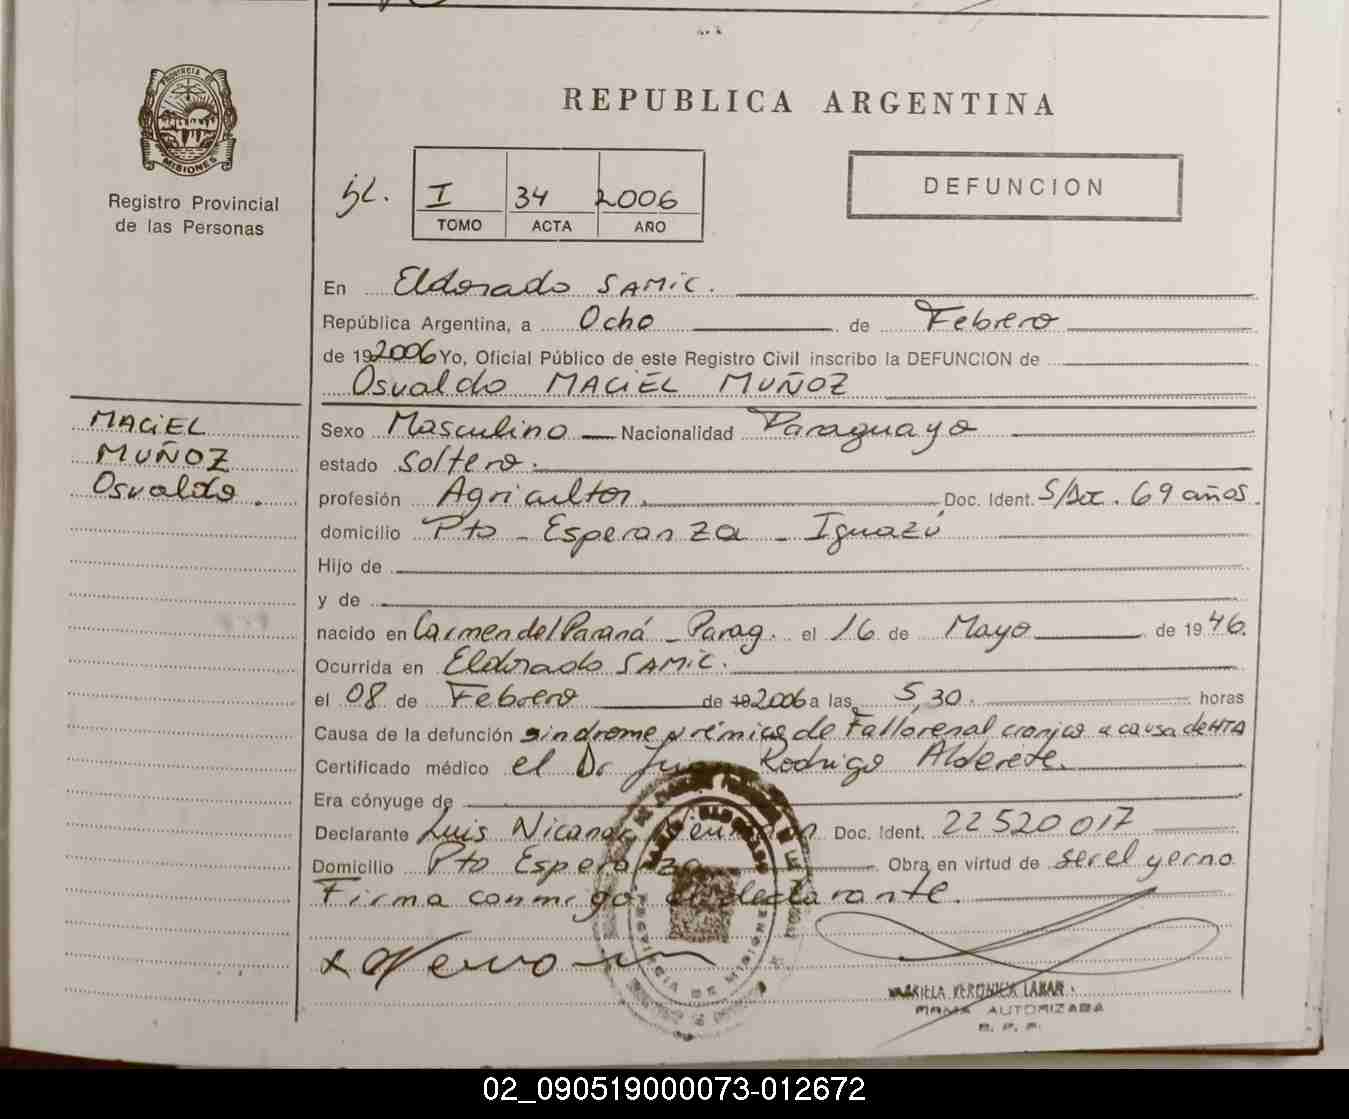 REPUBLICA ARGENTINA
PROVINCIA DE
MISIONES
Registro Provincial
de las Personas
I 34 2006
TOMO ACTA AÑO
DEFUNCION
En Eldorado SAMIC.
República Argentina, a Ocho de Febrero
de 192006 Yo, Oficial Público de este Registro Civil inscribo la DEFUNCION de
Osvaldo MACIEL MUÑOZ
MACIEL
MUÑOZ
Osvaldo.
Sexo Masculino Nacionalidad Paraguayo
estado Soltero.
profesión Agricultor. Doc. Ident. S/Doc. 69 años.
domicilio Pto - Esperanza - Iguazú
Hijo de
y de
nacido en Carmen del Paraná - Parag. el 16 de Mayo de 1946.
Ocurrida en Eldorado SAMIC.
el 08 de Febrero de 192006 a las 5,30. horas
Causa de la defunción sindrome urémico de Fallo renal cronico a causa de HTA
Certificado médico el Dr Rodrigo Alderete.
Era cónyuge de
Declarante Luis Nicanor Doc. Ident. 22520017
Domicilio Pto Esperanza Obra en virtud de ser el yerno
Firma conmigo el declarante.
VERONICA
FIRMA AUTORIZADA
R. P. P.
PROVINCIA DE MISIONES
02_090519000073-012672